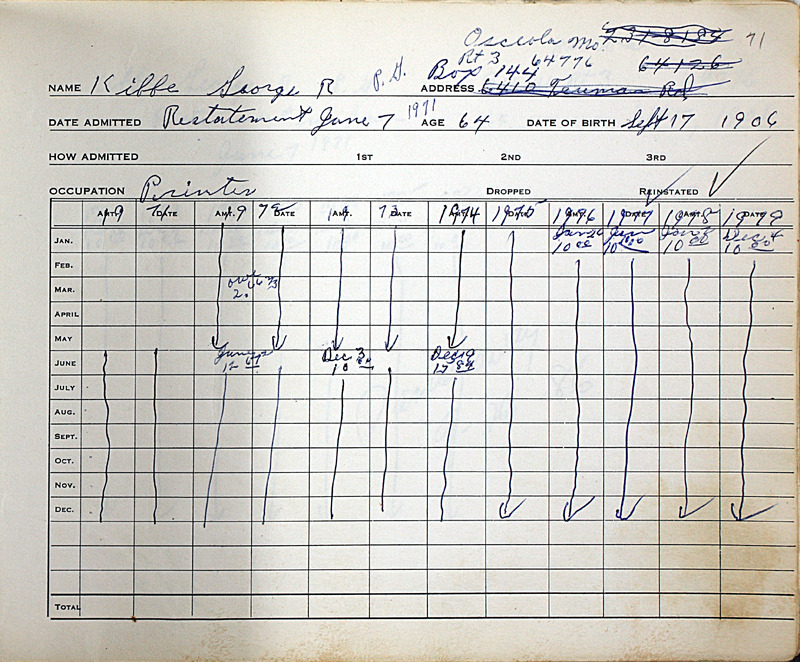 Osceola Mo. 71
Rt 3 64776 64126
NAME Kibbe George R P.G. Box 144
ADDRESS 6410 Truman Rd
DATE ADMITTED Restatement June 7 1971 AGE 64 DATE OF BIRTH Sept 17 1906
HOW ADMITTED 1ST 2ND 3RD
OCCUPATION Printer DROPPED REINSTATED
AMT. 19 71 DATE AMT. 19 72 DATE 19 AMT. 73 DATE 1974 AMT. 1975 DATE 1976 AMT. 1977 DATE 1978 AMT. 1979 DATE
JAN. Jan 10 00 10 00 10 00 Dec 4 10 00
FEB.
MAR. 2.
APRIL
MAY
JUNE June Dec 3 10 Dec 19
JULY
AUG.
SEPT.
OCT.
NOV.
DEC.
TOTAL